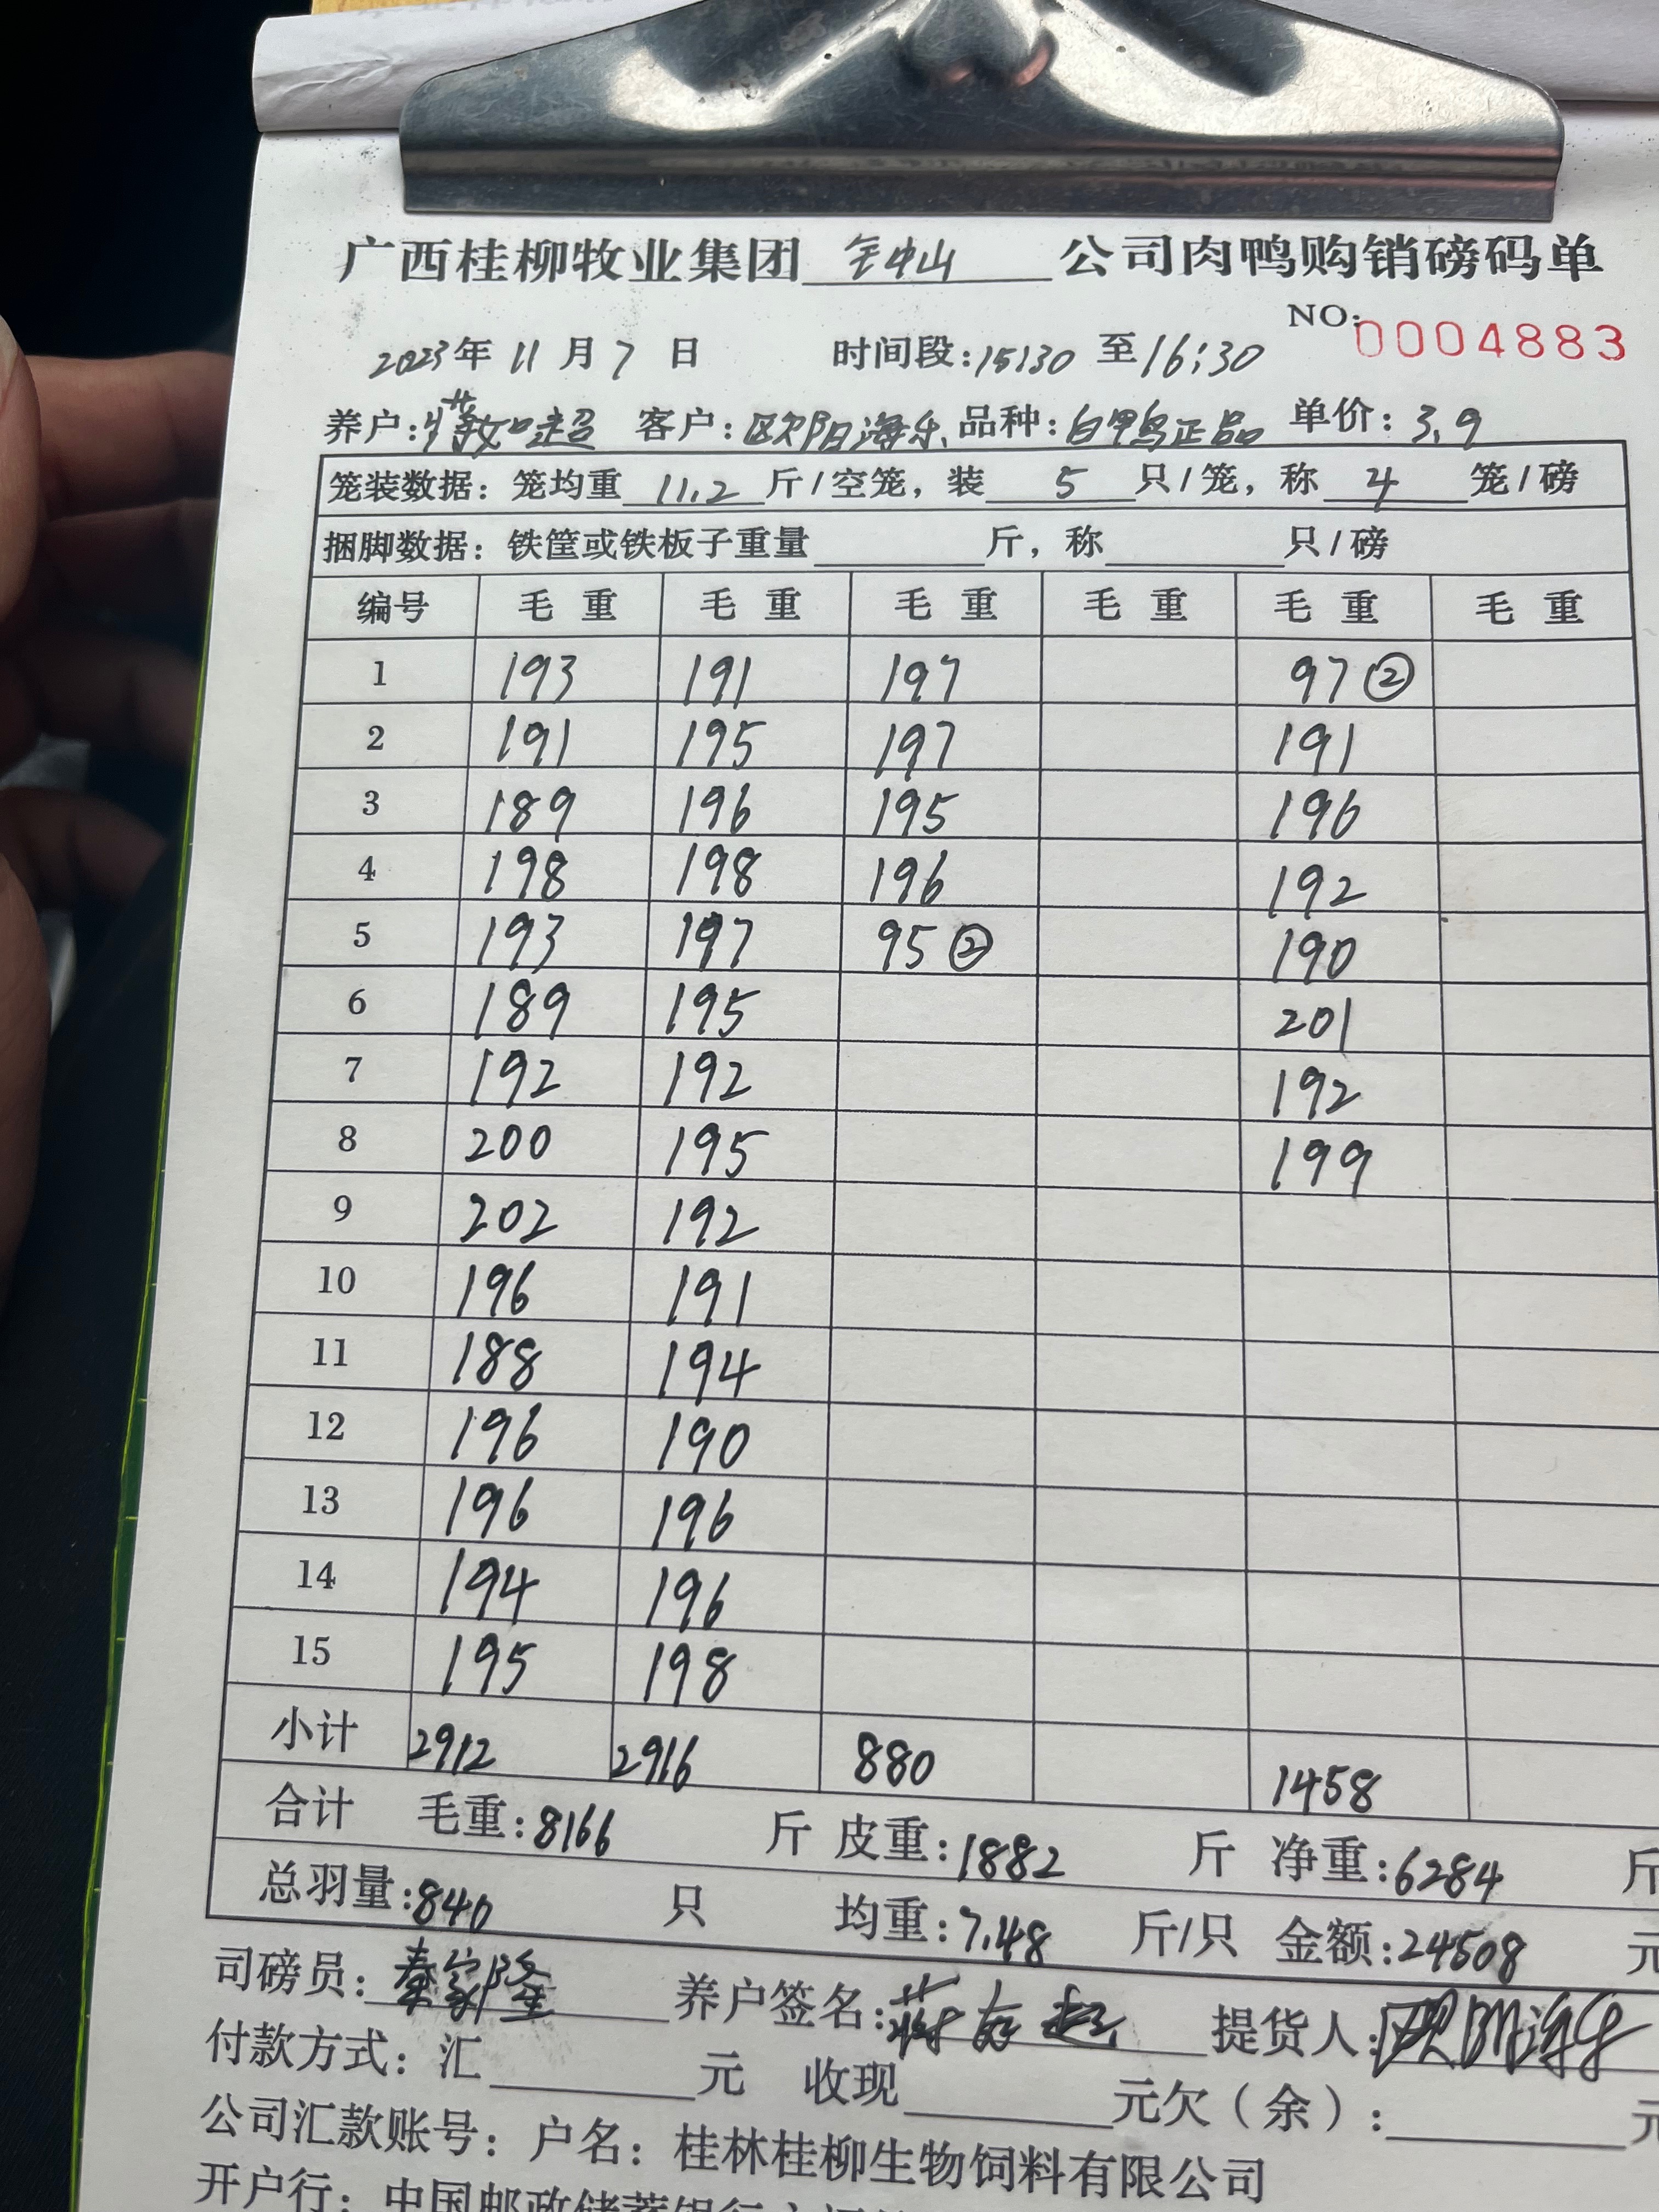 广西桂柳牧业集团 钟山 公司肉鸭购销磅码单
NO:0004883
2023年 11 月 7 日 时间段:15:30 至 16:30
养户: 客户:欧阳海乐 品种:白鸭正品 单价:3.9
笼装数据:笼均重 11.2 斤/空笼,装 5 只/笼,称 4 笼/磅
捆脚数据:铁筐或铁板子重量 斤,称 只/磅
编号 毛重 毛重 毛重 毛重 毛重 毛重
1 193 191 197 97②
2 191 195 197 191
3 189 196 195 196
4 198 198 196 192
5 193 197 95② 190
6 189 195 201
7 192 192 192
8 200 195 199
9 202 192
10 196 191
11 188 194
12 196 190
13 196 196
14 194 196
15 195 198
小计 2912 2916 880 1458
合计 毛重:8166 斤 皮重:1882 斤 净重:6284 斤
总羽量:840 只 均重:7.48 斤/只 金额:24508 元
司磅员:秦家隆 养户签名: 提货人:
付款方式:汇 元 收现 元欠(余): 元
公司汇款账号:户名:桂林桂柳生物饲料有限公司
开户行:中国邮政储蓄银行